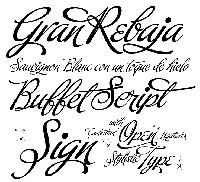 Gran Rebaja
Sauvignon Blanc con un toque de hielo
Buffet Script
with
Open
Sign
Stylistic Type